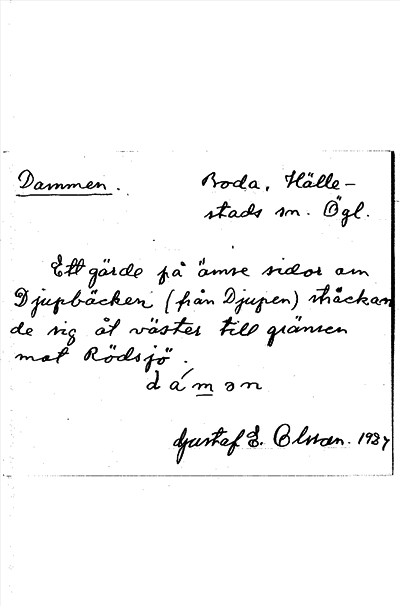 Dammen.
Boda, Hälle-
stads sn. Ögl.
Ett gärde på ömse sidor om
Djupbäcken (från Djupen) sträckan
de sig åt väster till gränsen
mot Rödsjö.
dá m̲ ə n
Gustaf E. Olsson. 1937